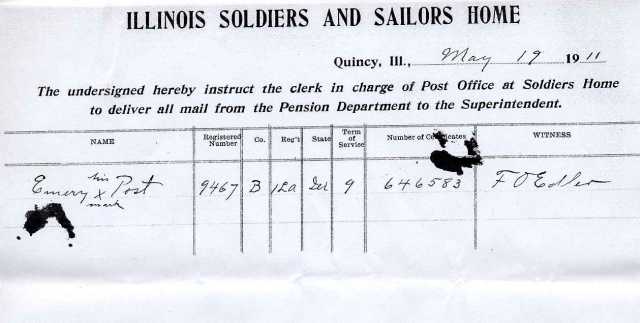 ILLINOIS SOLDIERS AND SAILORS HOME
Quincy, Ill., May 19 1911
The undersigned hereby instruct the clerk in charge of Post Office at Soldiers Home
to deliver all mail from the Pension Department to the Superintendent.
NAME Registered Number Co. Reg't State Term of Service Number of Certificates WITNESS
his
Emery x Post 9467 B 9 646583 F O Edler
mark